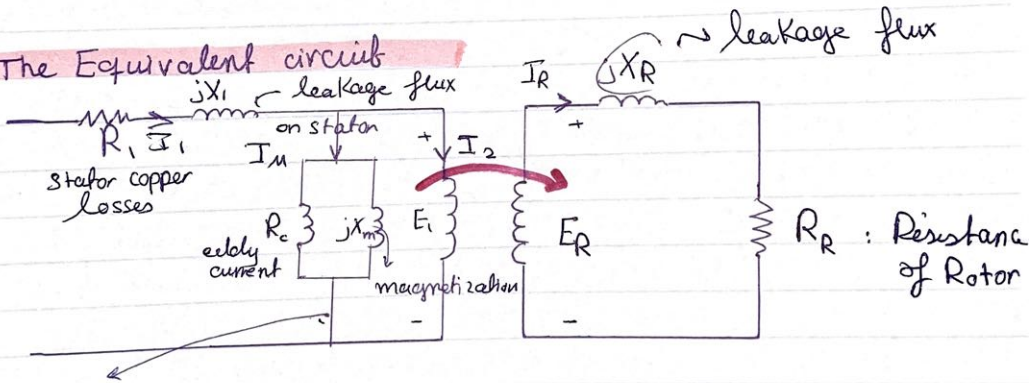 The Equivalent circuit
jX1
leakage flux
on stator
R1 I1
stator copper
losses
IM
Rc
eddy
current
jXm
magnetization
+ I2
E1
-
IR
jXR
leakage flux
+
ER
-
RR : Resistanc
of Rotor